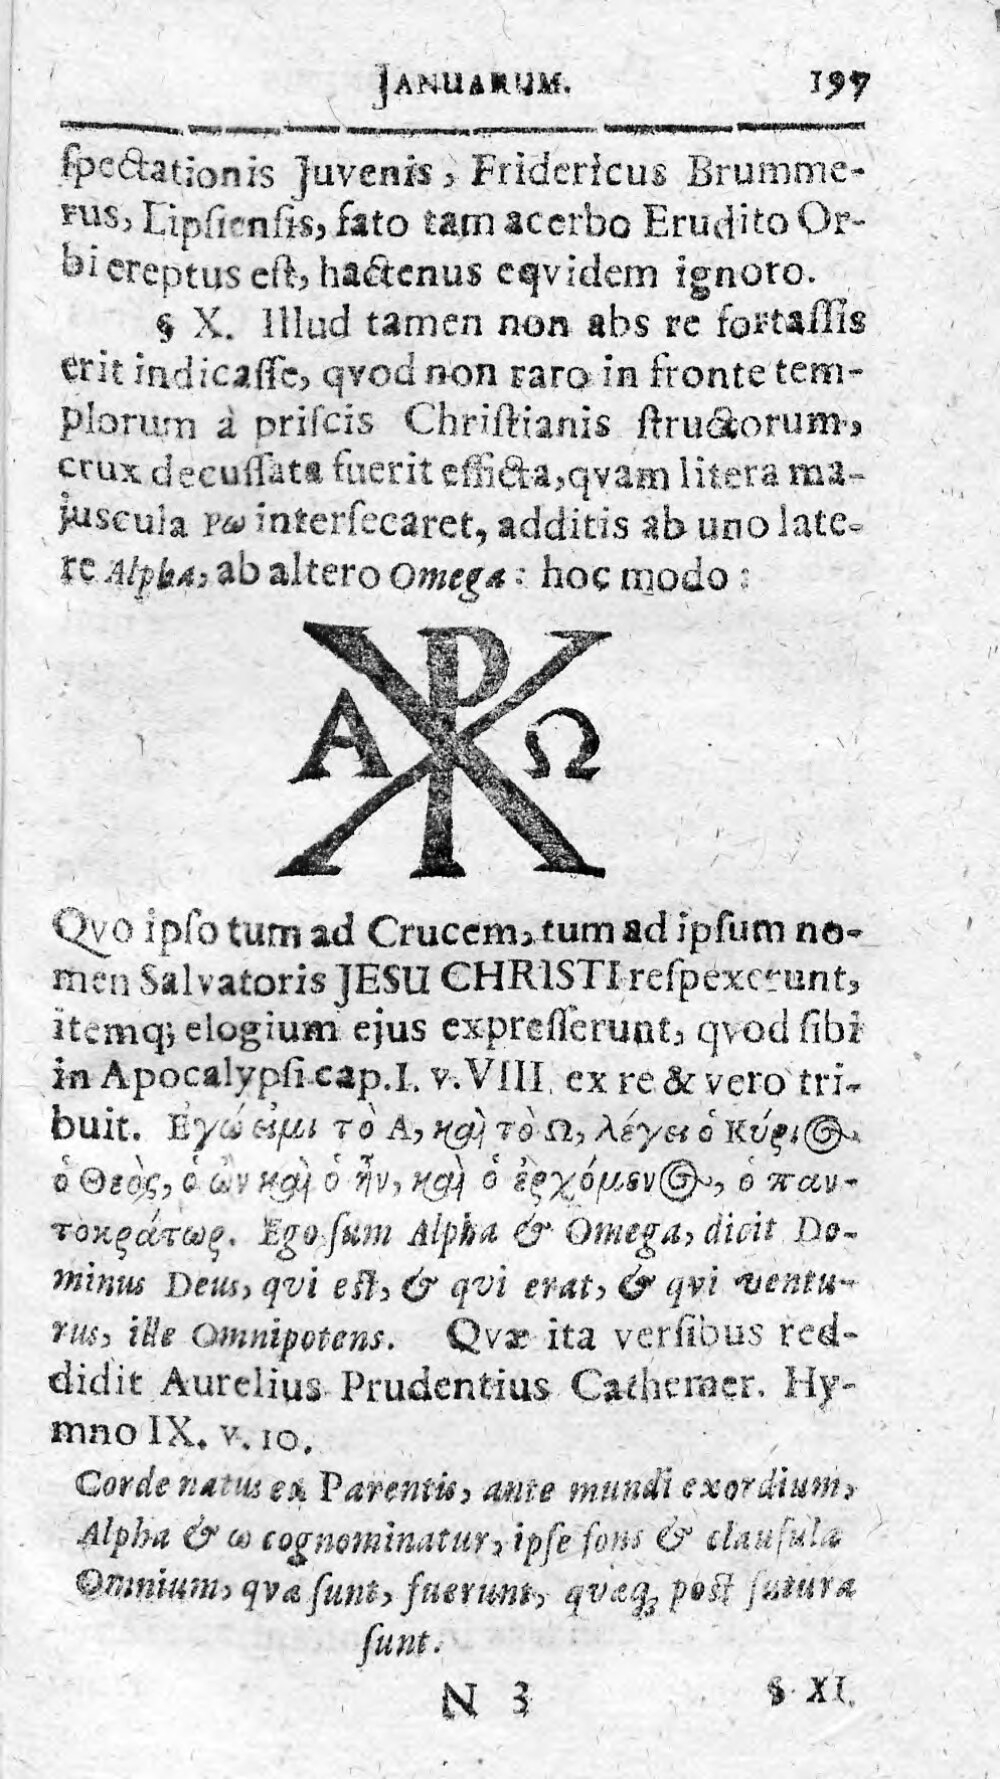 JANUARUM. 197
ſpectationis Juvenis, Fridericus Brumme-
rus, Lipſienſis, fato tam acerbo Erudito Or-
bi ereptus eſt, hactenus eqvidem ignoto.
§ X. Illud tamen non abs re fortaſſis
erit indicaſſe, qvod non raro in fronte tem-
plorum à priſcis Chriſtianis ſtructorum,
crux decuſſata fuerit efficta, qvam litera ma-
juscula Ρω interſecaret, additis ab uno late-
re Alpha, ab altero Omega: hoc modo:
Α Ρ Χ Ω
Qvo ipſo tum ad Crucem, tum ad ipſum no-
men Salvatoris JESU CHRISTI reſpexerunt,
itemq; elogium ejus expreſſerunt, qvod ſibi
in Apocalypſi cap. I. v. VIII. ex re & vero tri-
buit. Εγώ εἰμι τὸ Α, καὶ τὸ Ω, λέγει ὁ Κύριος
ὁ Θεὸς, ὁ ὢν καὶ ὁ ἦν, καὶ ὁ ἐρχόμενος, ὁ παν-
τοκράτωρ. Ego ſum Alpha & Omega, dicit Do-
minus Deus, qvi eſt, & qvi erat, & qvi ventu-
rus, ille Omnipotens. Qvæ ita verſibus red-
didit Aurelius Prudentius Cathemer. Hy-
mno IX. v. 10.
Corde natus ex Parentis, ante mundi exordium,
Alpha & ω cognominatur, ipſe fons & clauſula
Omnium, qvæ ſunt, fuerunt, qvæq; poſt futura
ſunt.
N 3 § XI.